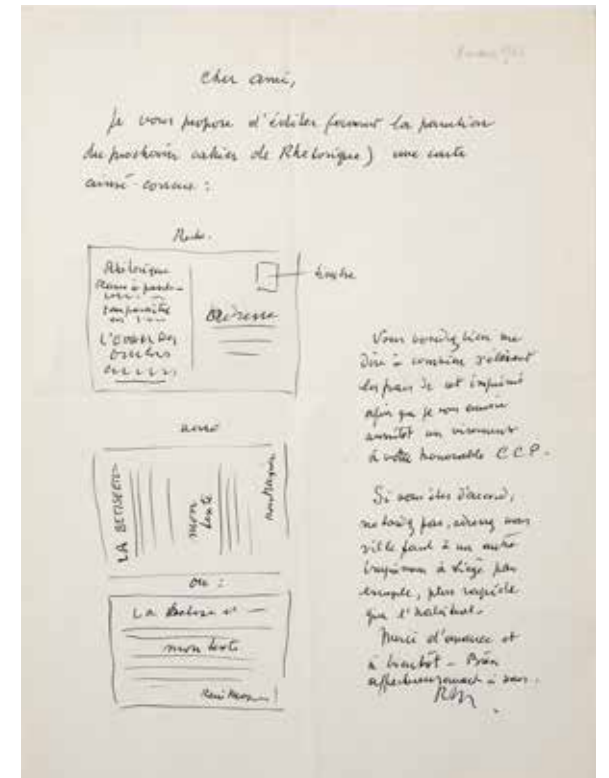 Cher ami,
Je vous propose d'éditer (avant la parution
du prochain cahier de Rhétorique) une carte
ainsi conçue :
Recto.
Rhétorique
L'
timbre
Adresse
verso
LA BETISE ET
mon
texte
René Magritte
ou :
La Bêtise et —
mon texte
René Magritte
Vous voudrez bien me
dire à combien s'élèvent
les frais de cet imprimé
afin que je vous envoie
aussitôt un virement
à votre honorable C.C.P.
Si vous êtes d'accord,
ne tardez pas, adressez vous
s'il le faut à un autre
imprimeur à Liège par
exemple, plus rapide
que l'habituel.
Merci d'avance et
à bientôt – Bien
affectueusement à vous.